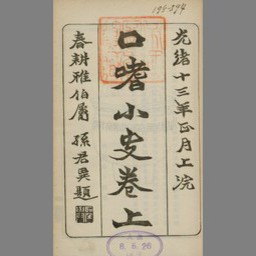 光緒十三年正月上浣
口嗜小史卷上
春耕雅伯屬 孫君異題
8.6.26